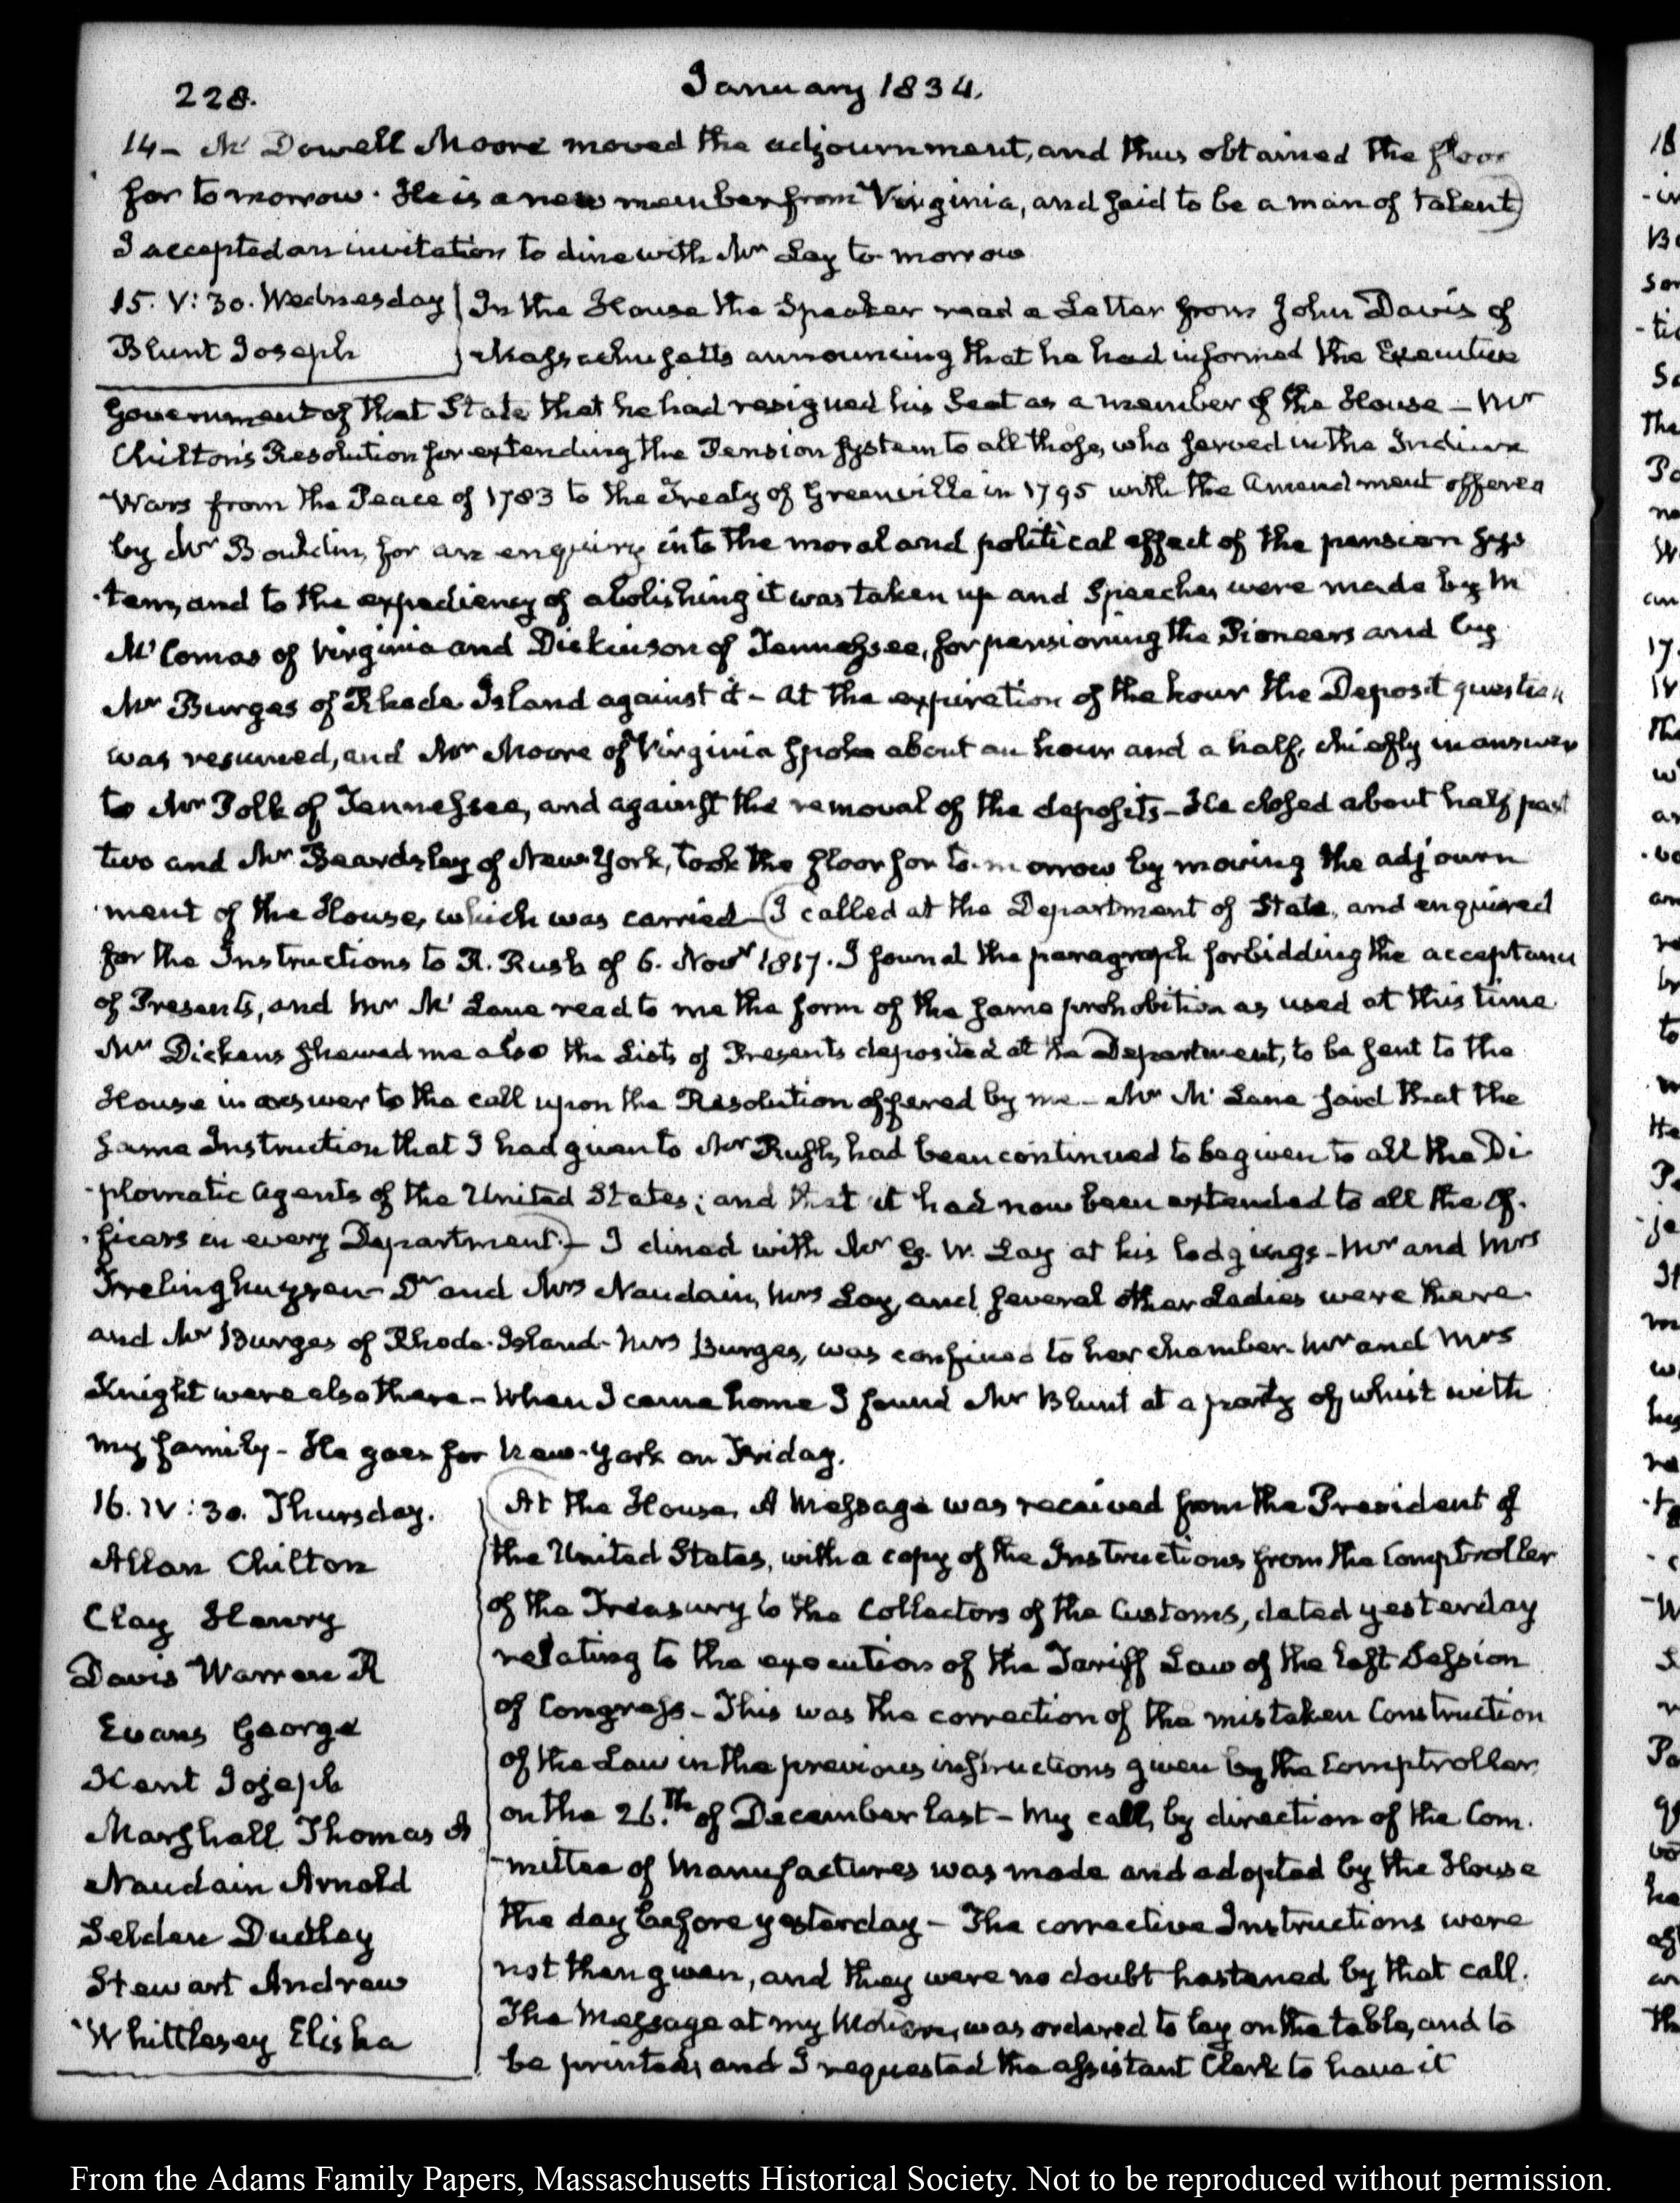 228.
January 1834.
14- Mc Dowell Moore moved the adjournment, and thus obtained the floor
for to morrow. He is a new member from Virginia, and said to be a man of talent)
I accepted an invitation to dine with Mr Lay to-morrow
15. V:30. Wednesday
Blunt Joseph
In the House the Speaker read a Letter from John Davis of
Massachusetts announcing that he had informed the Executive
Government of that State that he had resigned his Seat as a member of the House - Mr
Chilton's Resolution for extending the Pension system to all those, who served in the Indian
Wars from the Peace of 1783 to the Treaty of Greenville in 1795 with the Amendment offered
by Mr Bouldin, for an enquiry into the moral and political effect of the pension sys
-tem, and to the expediency of abolishing it was taken up and Speeches were made by Mr
McComas of Virginia and Dickinson of Tennessee, for pensioning the Pioneers and by
Mr Burges of Rhode Island against it - At the expiration of the hour the Deposit question
was resumed, and Mr Moore of Virginia spoke about an hour and a half, chiefly in answer
to Mr Polk of Tennessee, and against the removal of the deposits - He closed about half past
two and Mr Beardsley of New York, took the floor for to-morrow by moving the adjourn
-ment of the House, which was carried - (I called at the Department of State, and enquired
for the Instructions to R. Rush of 6. Novr 1817. I found the paragraph forbidding the acceptance
of Presents, and Mr Mc Lane read to me the form of the same prohobition as used at this time
Mr Dickens shewed me also the Lists of Presents deposited at the Department, to be sent to the
House in answer to the call upon the Resolution offered by me - Mr Mc Lane said that the
same Instruction that I had given to Mr Rush, had been continued to be given to all the Di
-plomatic Agents of the United States; and that it had now been extended to all the Of-
-ficers in every Department) - I dined with Mr G. W. Lay at his lodgings - Mr and Mrs
Frelinghuysen - Dr and Mrs Naudain, Mrs Lay, and several other Ladies were there
and Mr Burges of Rhode-Island - Mrs Burges, was confined to her chamber. Mr and Mrs
Knight were also there - When I came home I found Mr Blunt at a party of whist with
my family - He goes for New-York on Friday.
16. IV:30. Thursday.
Allan Chilton
Clay Henry
Davis Warren R
Evans George
Kent Joseph
Marshall Thomas A
Naudain Arnold
Selden Dudley
Stewart Andrew
Whittlesey Elisha
(At the House, A Message was received from the President of
the United States, with a copy of the Instructions from the Comptroller
of the Treasury to the Collectors of the Customs, dated yesterday
relating to the execution of the Tariff Law of the last Session
of Congress - This was the correction of the mistaken Construction
of the Law in the previous instructions given by the Comptroller
on the 26.th of December last - My call, by direction of the Com-
-mittee of Manufactures was made and adopted by the House
the day before yesterday - The corrective Instructions were
not then given, and they were no doubt hastened by that call.
The Message at my Motion, was ordered to lay on the table, and to
be printed, and I requested the assistant Clerk to have it
From the Adams Family Papers, Massachusetts Historical Society. Not to be reproduced without permission.